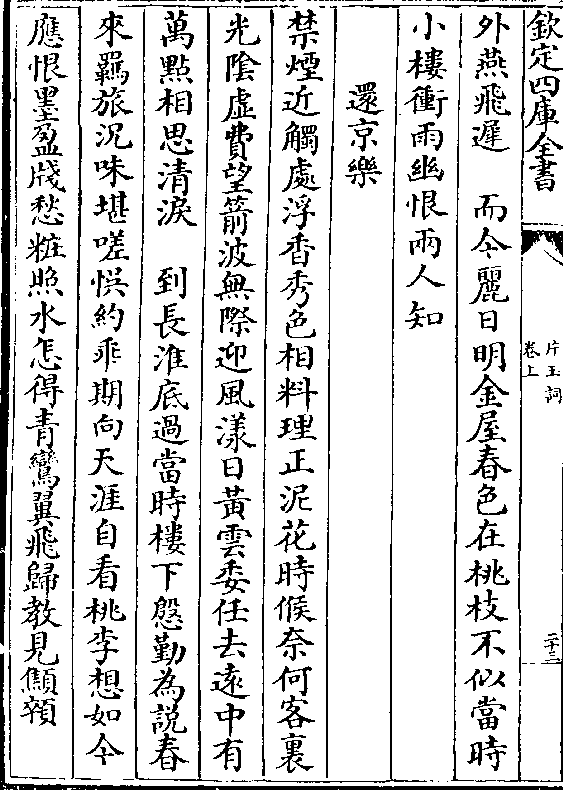 欽定四庫全書
片玉詞
卷上
二十三
外燕飛遲　而今麗日明金屋春色在桃枝不似當時
小樓衝雨幽恨兩人知
還京樂
禁煙近觸處浮香秀色相料理正泥花時候奈何客裏
光陰虛費望箭波無際迎風漾日黃雲委任去遠中有
萬點相思清淚　到長淮底過當時樓下慇勤為說春
來羈旅況味堪嗟悞約乖期向天涯自看桃李想如今
應恨墨盈牋愁粧照水怎得青鸞翼飛歸教見顦顇